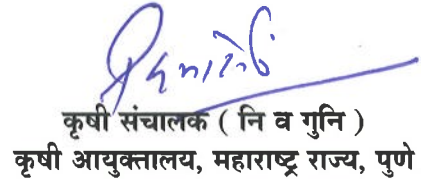 कृषी संचालक ( नि व गुनि )
कृषी आयुक्तालय, महाराष्ट्र राज्य, पुणे